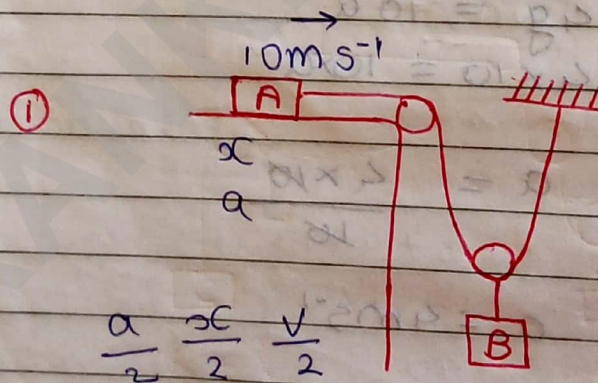 10ms⁻¹
① A
x
a
a/2 x/2 v/2
B